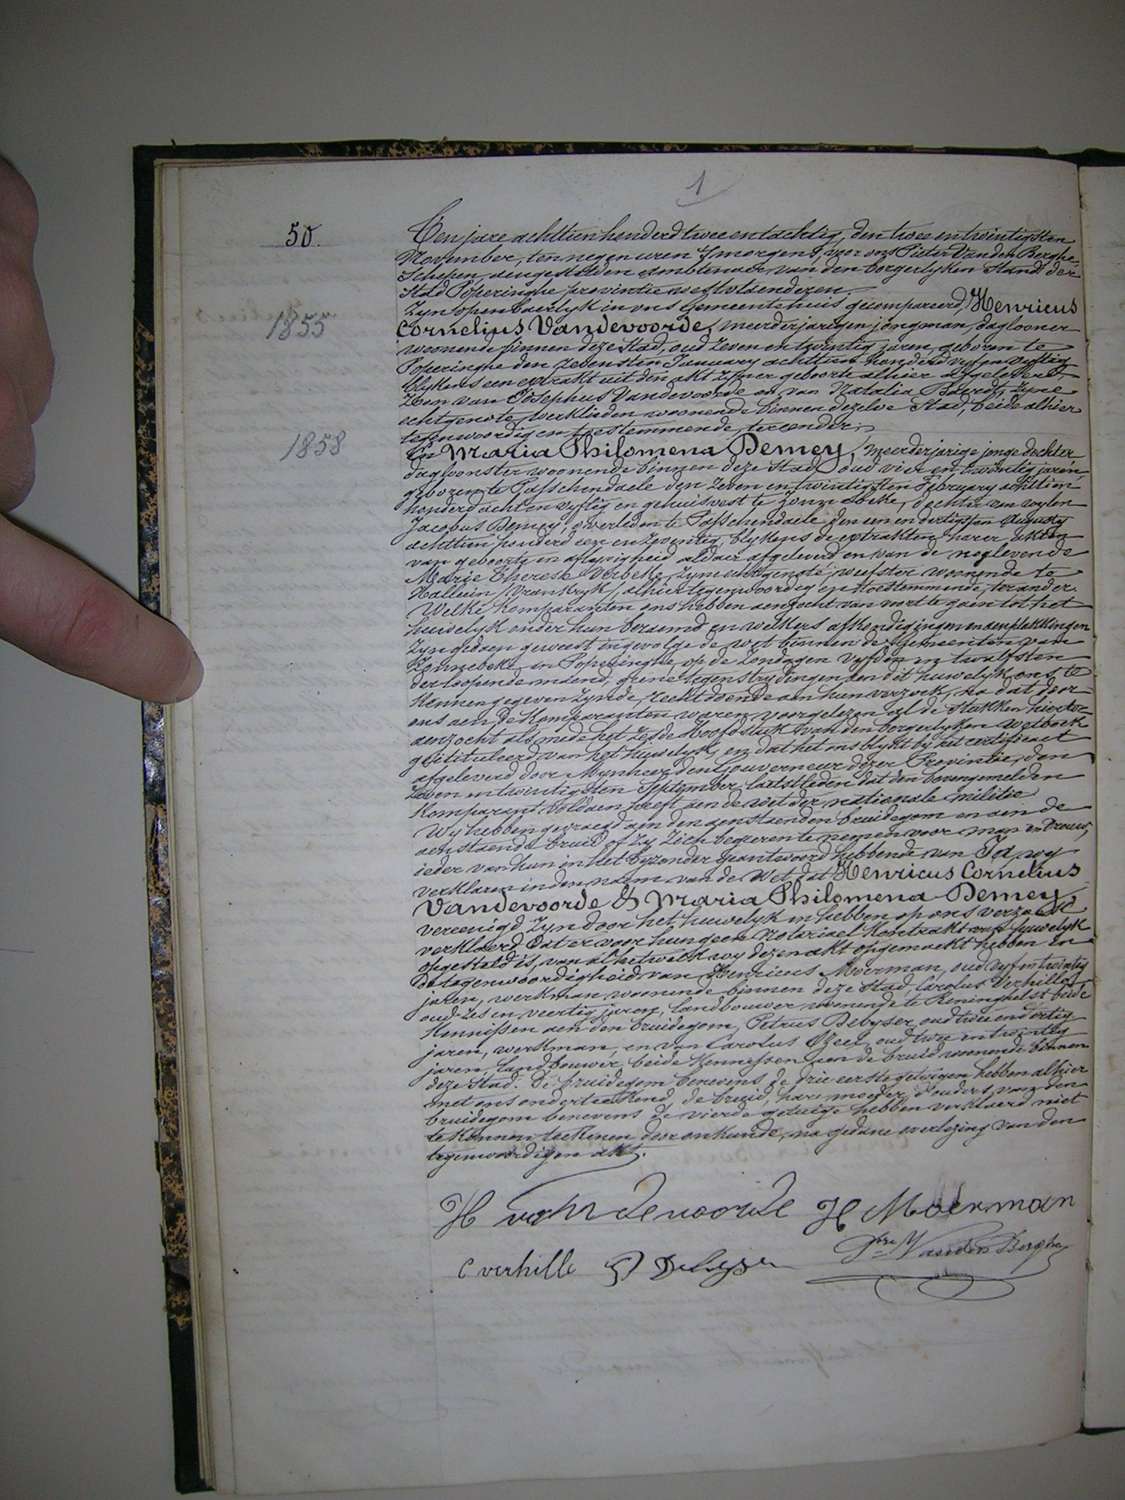 1
50.
Ten jare achttien honderd twee en tachtig, den twee en twintigsten
November, ten negen uren 's morgens, voor ons Pieter Vanden Berghe,
Schepen, aengestelden ambtenaer van den borgerlyken Stand der
Stad Poperinghe provintie westvlaenderen.
Zyn openbaerlyk in ons Gemeentehuis gecompareerd, Henricus
1855
Cornelius Vandevoorde, meerderjarigen jongman, daglooner
woonende binnen deze Stad, oud zeven en twintig jaren, geboren te
Poperinghe den zevensten January achttien honderd vyf en vyftig
blykens een extrakt uit den akt zyner geboorte alhier afgeleverd
Zoon van Josephus Vandevoorde en van Natalia zyne
echtgenote, werklieden woonende binnen dezelve Stad, beide alhier
tegenwoordig en toestemmende, ter eender.
1858
En Maria Philomena Demey, meerderjarige jonge dochter
dagloonster woonende binnen deze Stad, oud vier en twintig jaren,
geboren te Passchendaele den zeven en twintigsten February achttien
honderd acht en vyftig en gehuisvest te Zonnebeke, dochter van wylen
Jacobus Demey, overleden te Passchendaele den een en dertigsten Augusty
achttien honderd een en zeventig, blykens de extrakten harer akten
van geboorte en aflyvigheid aldaer afgeleverd en van de nog levende
Marie Therese Verbeke, zyne echtgenote, weefster woonende te
Halluin /Vrankryk/ alhier tegenwoordig en toestemmende, ter ander.
Welke komparanten ons hebben aenzocht van voort te gaen tot het
huwelyk onder hun beraemd en welkers afkondigingen en aenplakkingen
zyn gedaen geweest ingevolge de wet binnen de Gemeenten van
Zonnebeke en Poperinghe, op de zondagen vyfden en twaelfsten
der loopende maend, geene tegenstrydingen aen dit huwelyk ons te
kennen gegeven zynde, recht doende aen hun verzoek, na dat door
ons aen de komparanten waren voorgelezen al de stukken hiertoe
aenzocht als mede het zesde Hoofdstuk van den borgerlyken wetboek
getituleerd van het Huwelyk, en dat het ons blykt by het certificaet
afgeleverd door Mynheer den Gouverneur dezer Provintie, den
zeven en twintigsten September laetstleden dat den bovengemelden
komparant voldaen heeft aen de wet der nationale militie
Wy hebben gevraegd aen den aenstaenden bruidegom en aen de
aenstaende bruid of zy zich begeeren te nemen voor man en vrouw,
ieder van hun in het byzonder geantwoord hebbende van Ja, wy
verklaren in den naem van de Wet, dat Henricus Cornelius
Vandevoorde & Maria Philomena Demey,
vereenigd zyn door het huwelyk en hebben op ons verzoek
verklaerd dat er voor hun geen Notariael Kontrakt van huwelyk
opgesteld is, van al hetwelk wy dezen akt opgemaekt hebben in
de tegenwoordigheid van Henricus Moerman, oud vyf en twintig
jaren, werkman, woonende binnen deze Stad, Carolus Verhille,
oud zes en veertig jaren, landbouwer woonende te Reninghelst beide
kennissen aen den bruidegom, Petrus Debyser, oud twee en dertig
jaren, werkman, en van Carolus oud twee en twintig
jaren, landbouwer, beide kennissen aen de bruid woonende binnen
deze Stad. De bruidegom benevens de drie eerste getuigen hebben alhier
met ons onderteekend, de bruid, hare moeder, d'ouders van den
bruidegom benevens de vierde getuige hebben verklaerd niet
te kunnen teekenen door onkunde, na gedane voorlezing van den
tegenwoordigen akt.
H vandevoorde H Moerman
C verhille P Debyser Pre Vanden Berghe